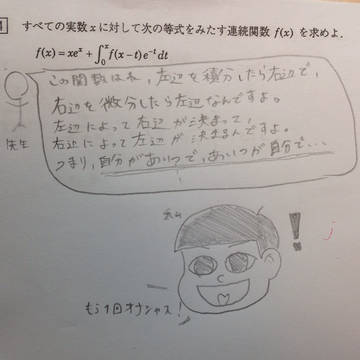 すべての実数 x に対して次の等式をみたす連続関数 f(x) を求めよ.
f(x)=xeˣ+∫₀ˣf(x-t)e⁻ᵗdt
この関数はね，左辺を積分したら右辺で，
右辺を微分したら左辺なんですよ。
左辺によって右辺が決まって，
右辺によって左辺が決まるんですよ。
つまり，自分があいつで，あいつが自分で・・・
先生
!
もう1回オナシャス!